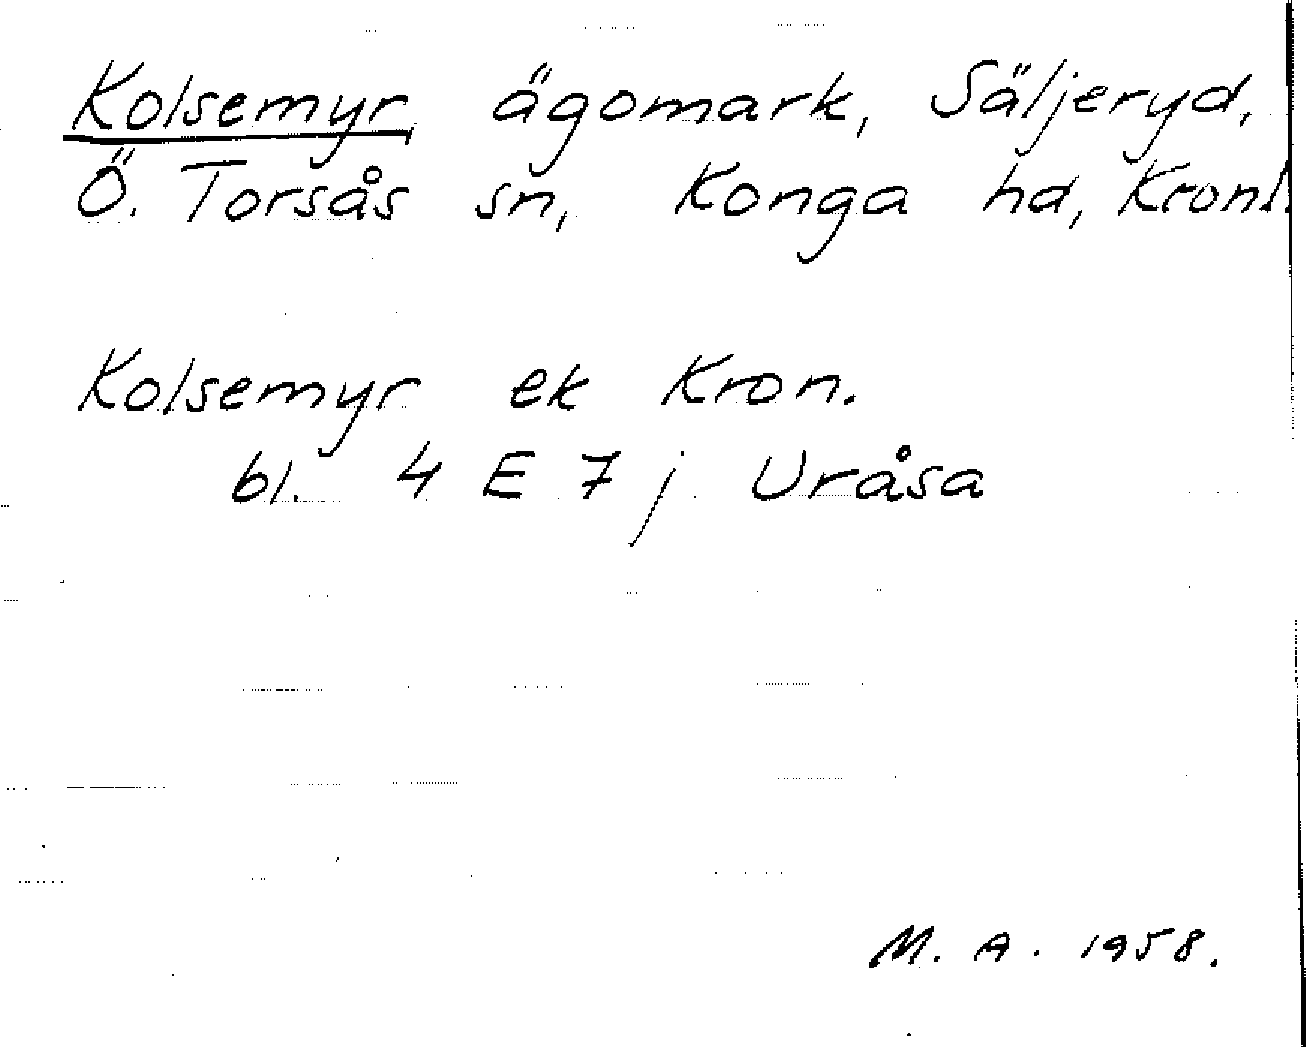 Kolsemyr ägomark, Säljeryd,
Ö. Torsås sn, Konga hd, Kronl.
Kolsemyr ek Kron.
bl. 4 E 7 j Uråsa
M. A. 1958.